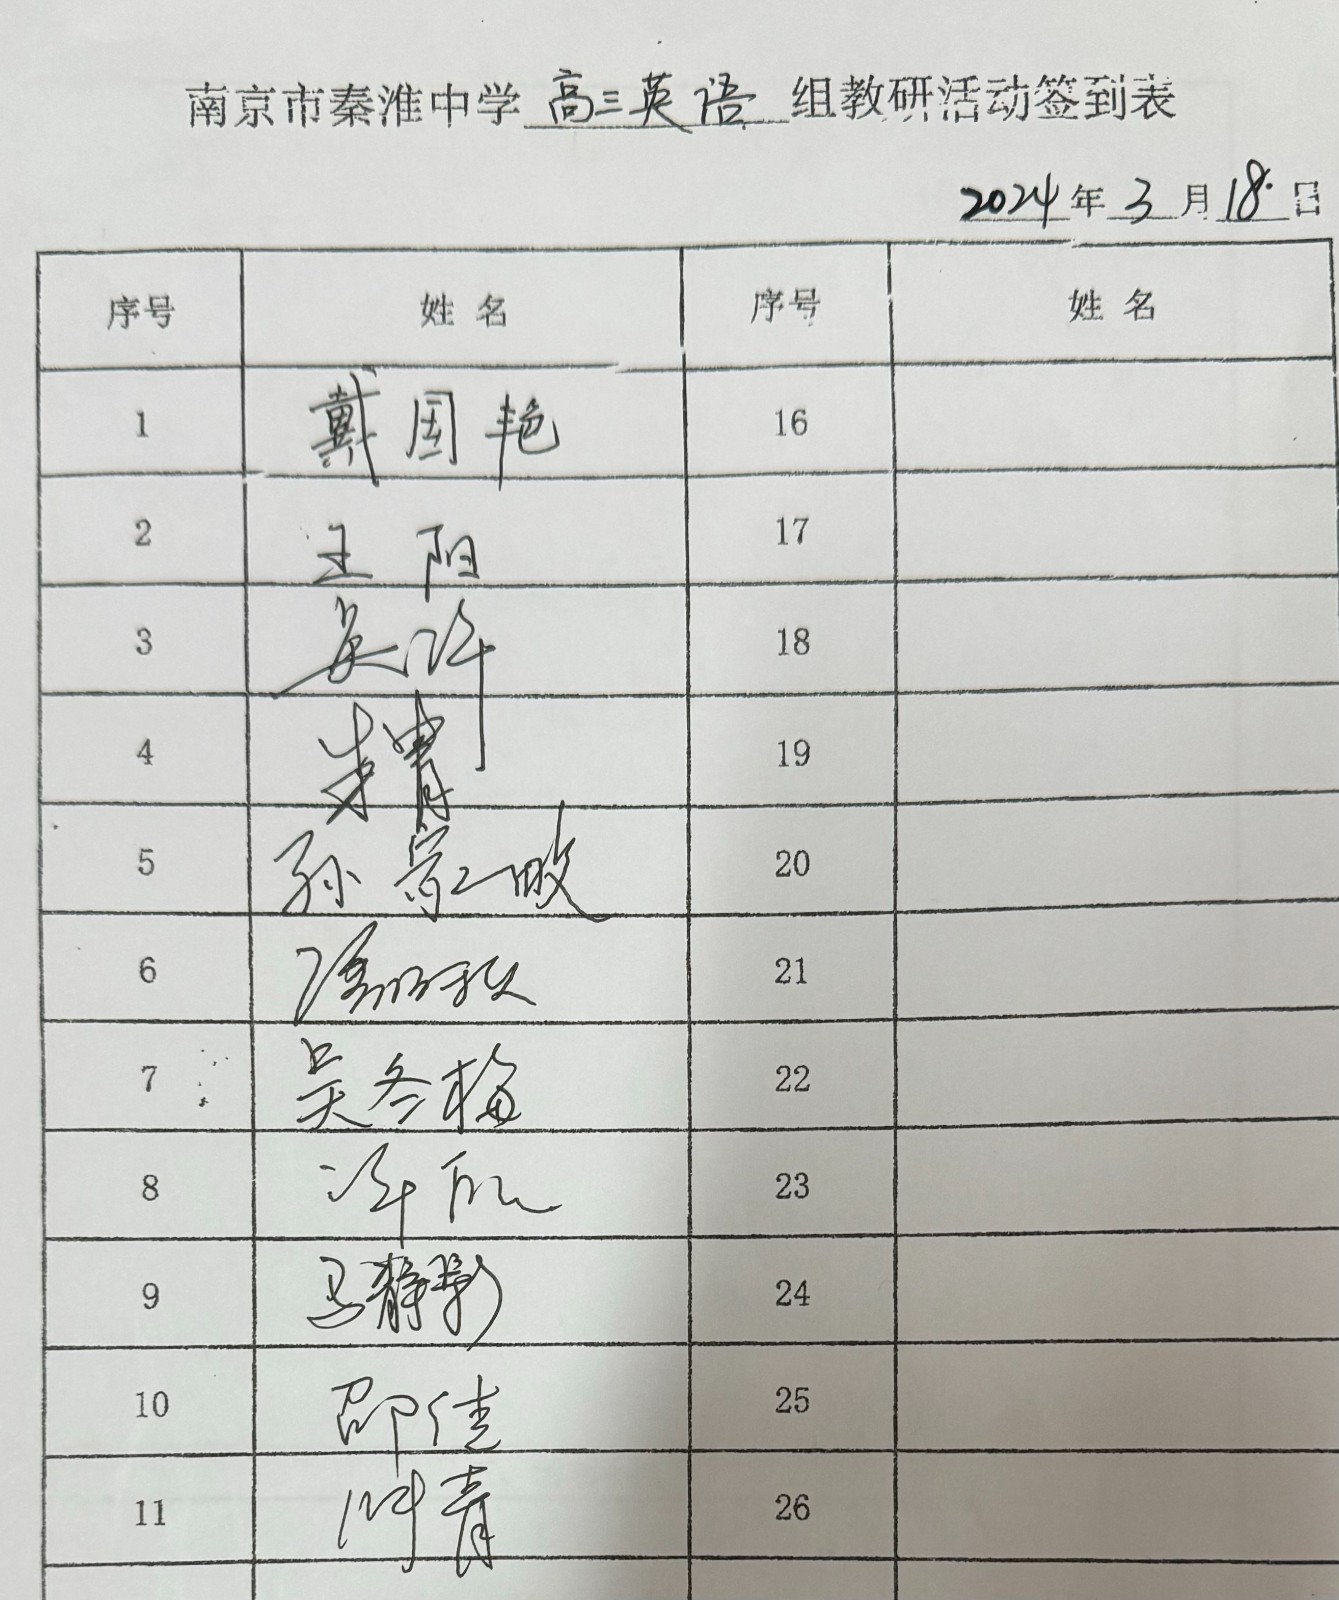 南京市秦淮中学 高三英语 组教研活动签到表
2024年3月18日
序号 姓名 序号 姓名
1 戴国艳 16
2 王阳 17
3 18
4 19
5 孙 20
6 21
7 吴冬梅 22
8 23
9 马静影 24
10 邵佳 25
11 青 26